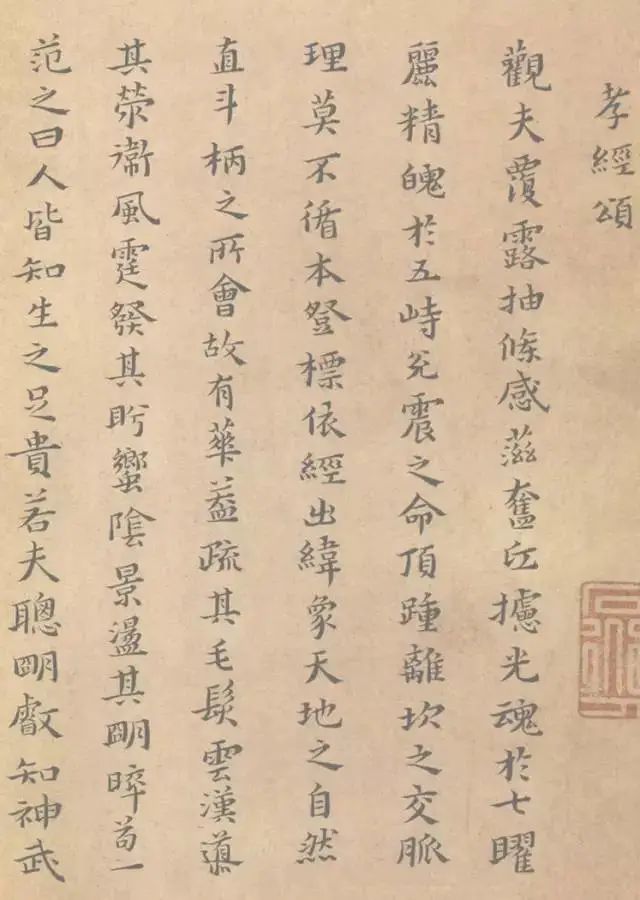 孝經頌
觀夫覆露抽條感滋奮攄光魂於七曜
麗精魄於五峙兌震之命頂踵離坎之交脈
理莫不循本登標依經出緯象天地之自然
直斗柄之所會故有華蓋疏其毛髮雲漢導
其滎衞風霆發其肹蠁陰景盪其明晬苟一
范之曰人皆知生之足貴若夫聰明叡知神武